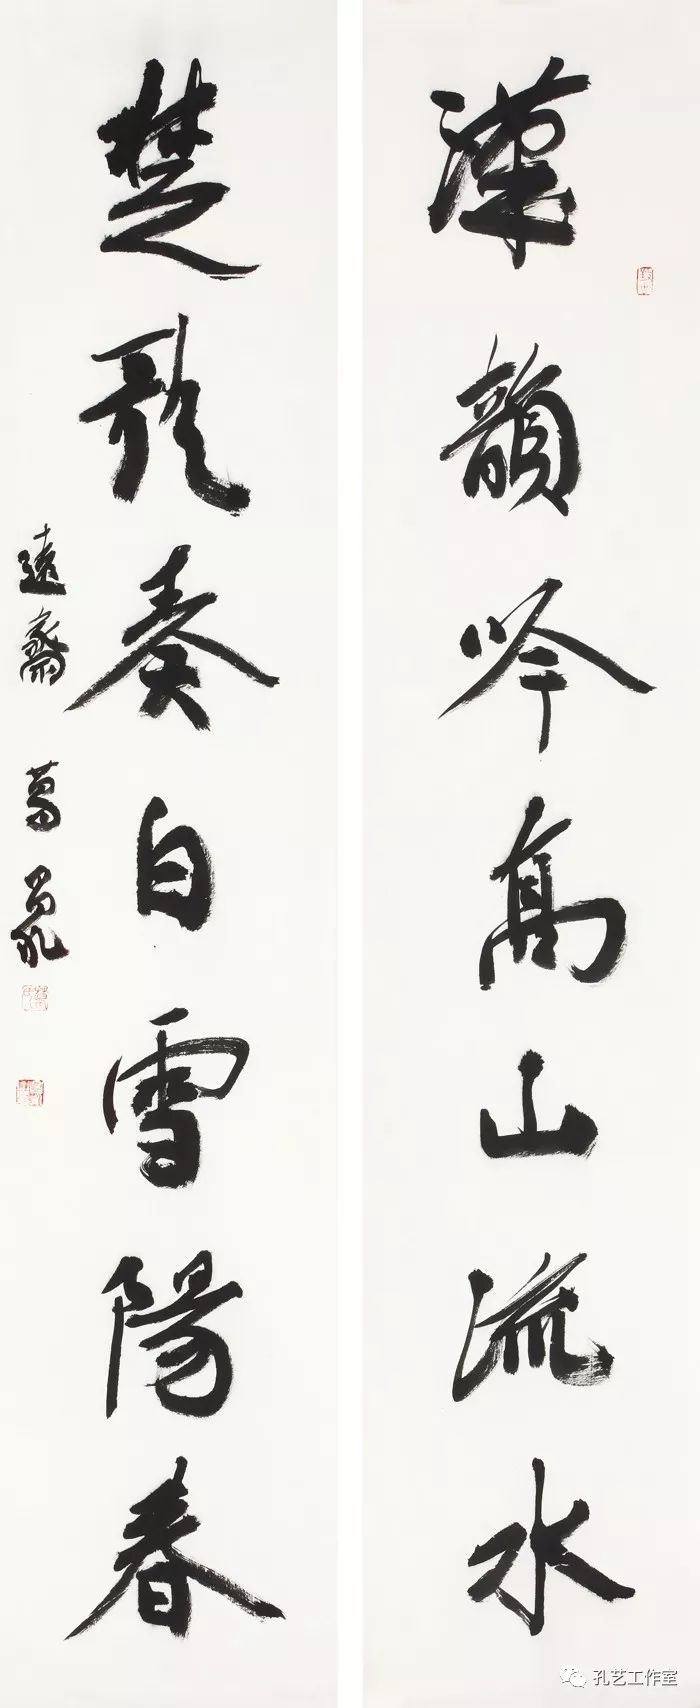 漢韻吟高山流水
楚歌奏白雪陽春
遠齋 葛昌永
孔艺工作室